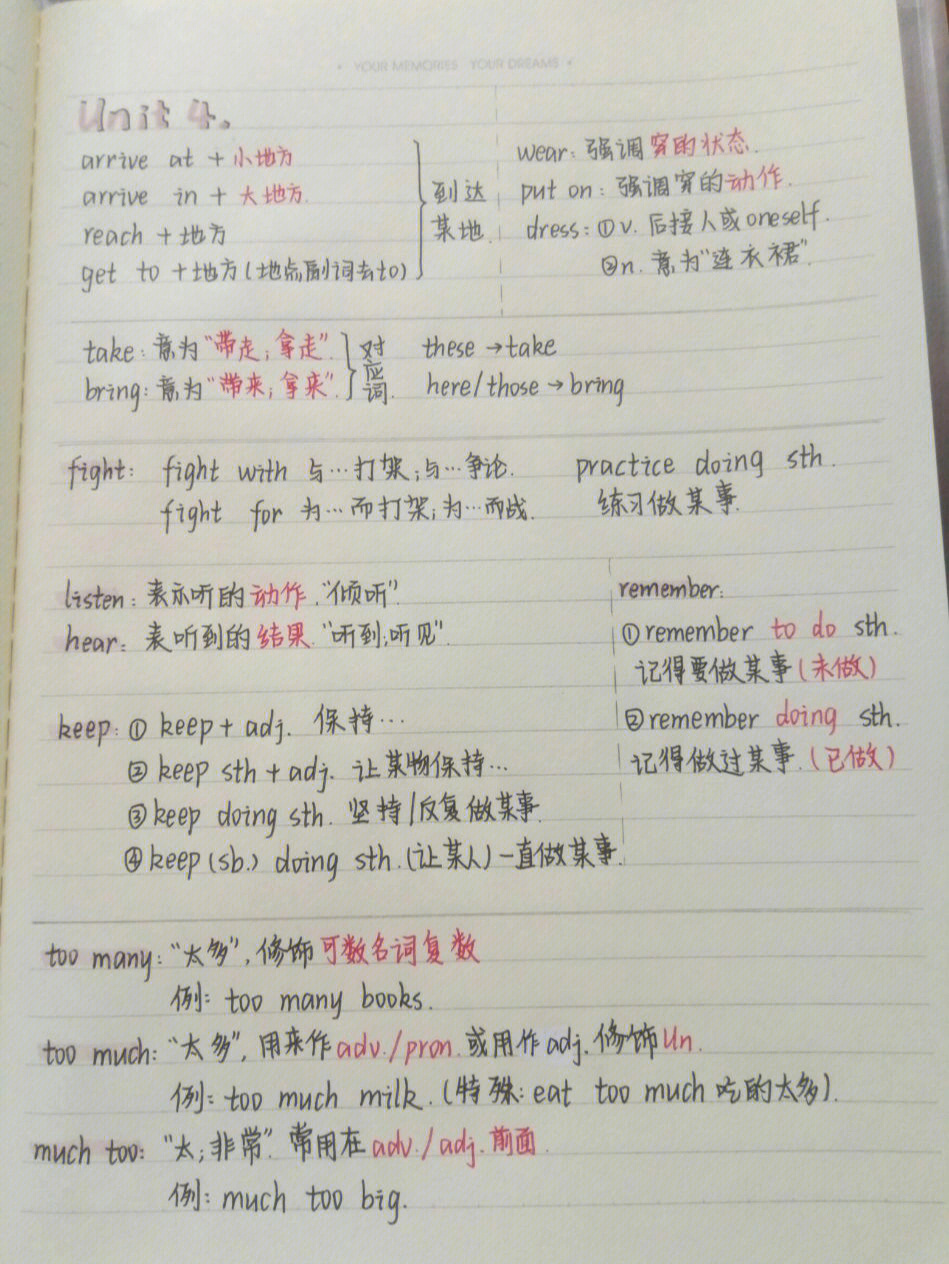 • YOUR MEMORIES YOUR DREAMS •
Unit 4.
arrive at + 小地方
arrive in + 大地方.
reach + 地方
get to + 地方(地点副词去to)
到达
某地.
wear: 强调穿的状态.
put on: 强调穿的动作.
dress: ①v. 后接人或oneself.
②n. 意为“连衣裙”.
take: 意为“带走; 拿走”.
bring: 意为“带来; 拿来”.
对应词.
these → take
here/those → bring
fight: fight with 与…打架; 与…争论.
fight for 为…而打架; 为…而战.
practice doing sth.
练习做某事.
listen: 表示听的动作. “倾听”.
hear: 表听到的结果. “听到; 听见”.
remember:
①remember to do sth.
记得要做某事(未做)
②remember doing sth.
记得做过某事.(已做)
keep: ① keep + adj. 保持…
② keep sth + adj. 让某物保持…
③ keep doing sth. 坚持/反复做某事.
④ keep (sb.) doing sth. (让某人)一直做某事.
too many: “太多”, 修饰可数名词复数
例: too many books.
too much: “太多”, 用来作adv./pron. 或用作adj. 修饰Un.
例: too much milk. (特殊: eat too much 吃的太多).
much too: “太; 非常”. 常用在adv./adj. 前面.
例: much too big.